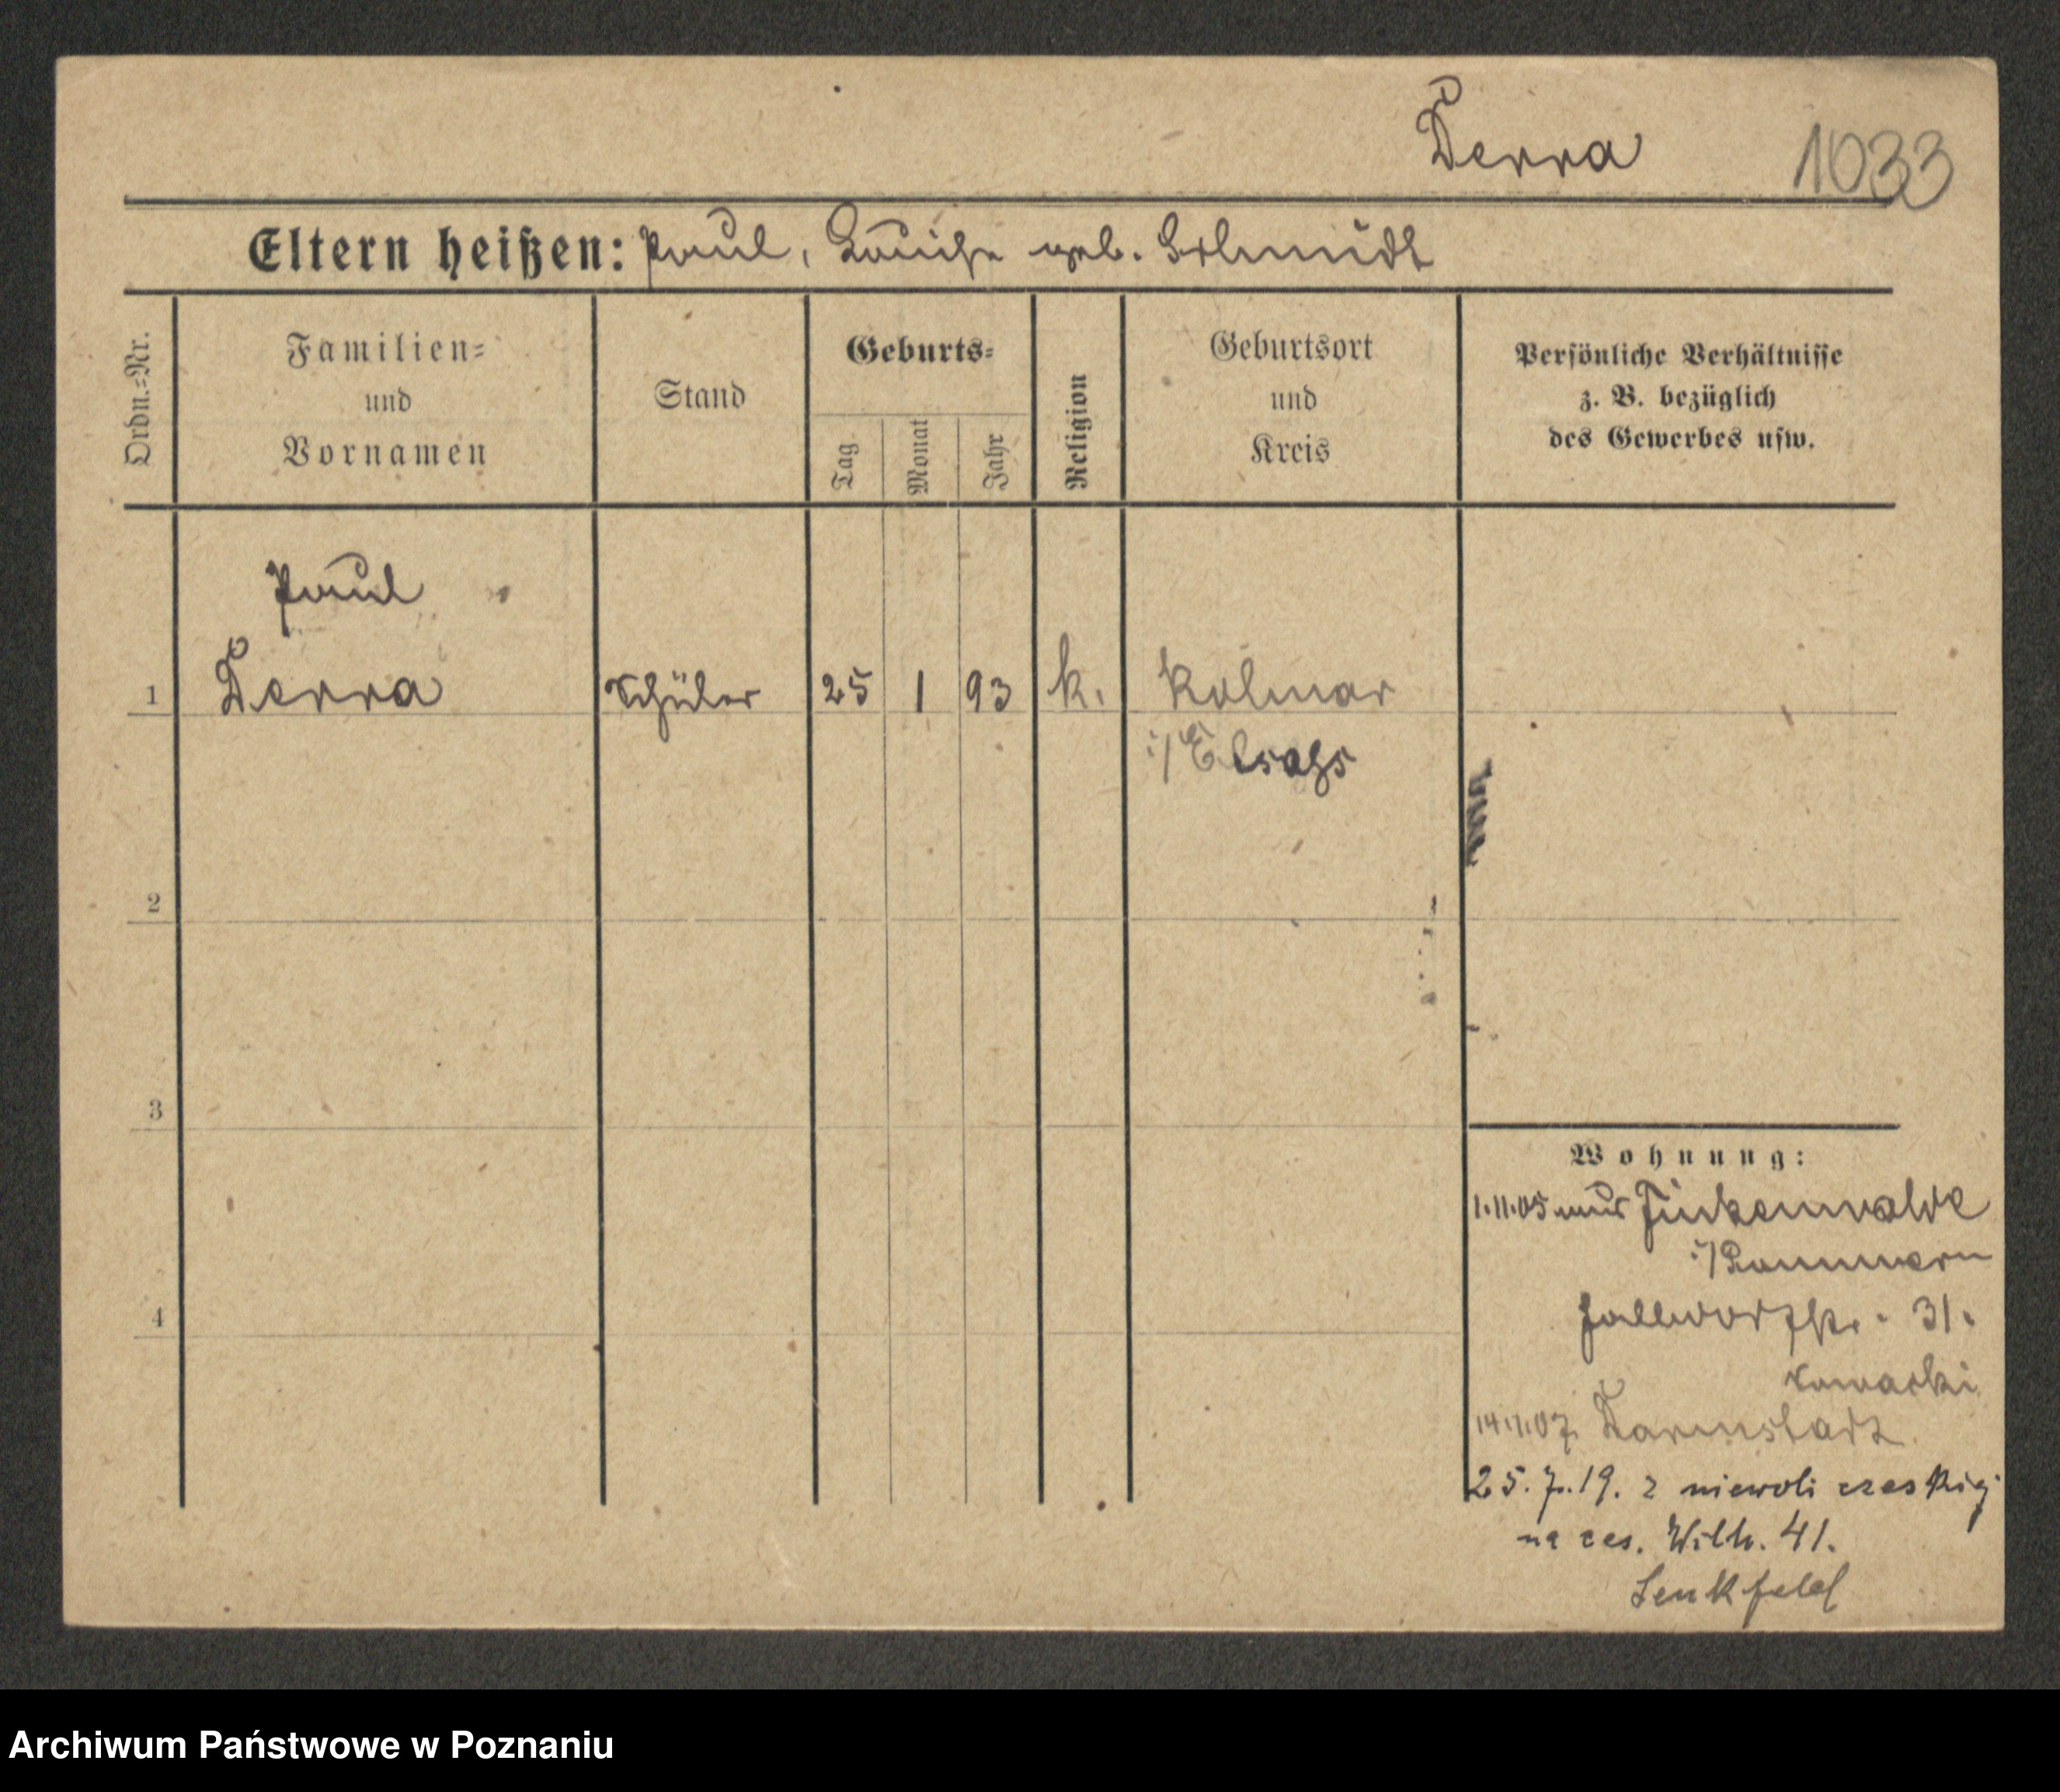 Derra 1033
Eltern heißen: Paul, Louise geb. Schmidt
Ordn.=Nr.
Familien=
und
Vornamen
Stand
Geburts=
Tag
Monat
Jahr
Religion
Geburtsort
und
Kreis
Persönliche Verhältnisse
z. B. bezüglich
des Gewerbes usw.
Paul
1 Derra Schüler 25 1 93 k. Kolmar
i/Elsaß
2
3
4
Wohnung:
1.11.05 aus Finkenwalde
i/Pommern
31.
Darmstadt
25.7.19. z niewoli czeskiej
na ces. Wilh. 41.
Senkfeld
Archiwum Państwowe w Poznaniu